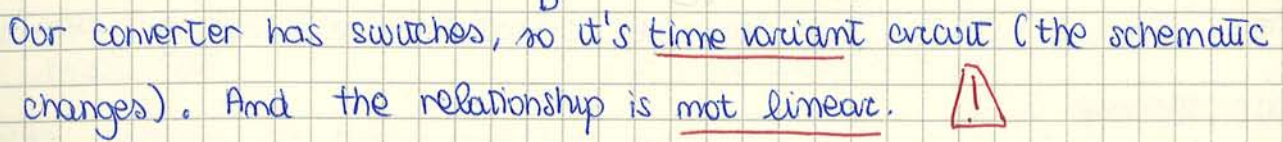 Our converter has switches, so it's time variant circuit (the schematic
changes). And the relationship is not linear. !